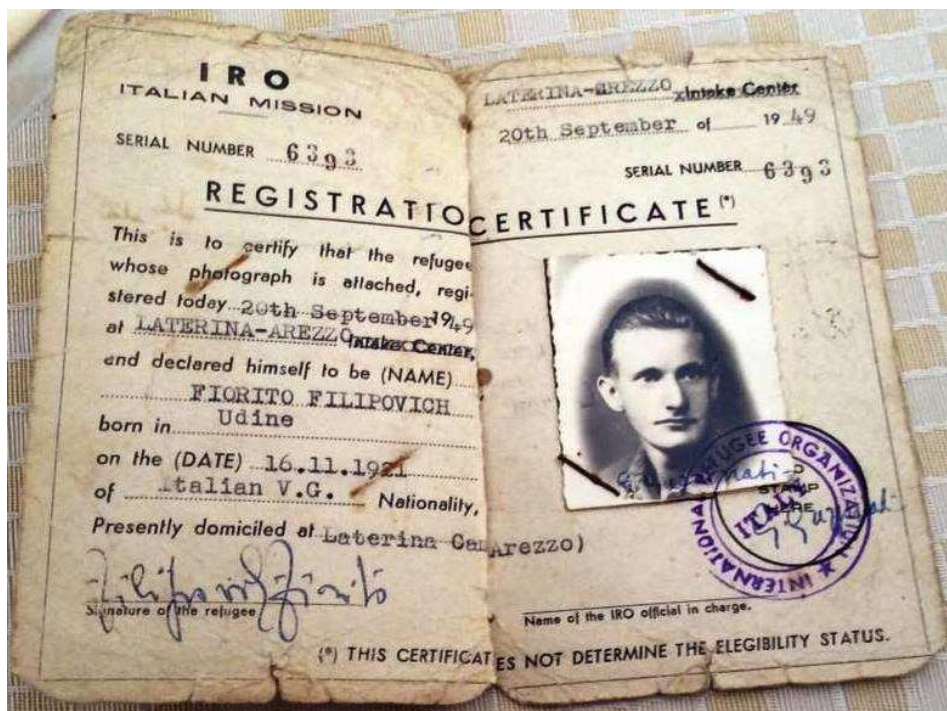 IRO
ITALIAN MISSION
SERIAL NUMBER 6393
REGISTRATIO
This is to certify that the refugee
whose photograph is attached, regi-
stered today 20th September 1949
at LATERINA-AREZZO Intake Center,
and declared himself to be (NAME)
FIORITO FILIPOVICH
born in Udine
on the (DATE) 16.11.1921
of Italian V.G. Nationality,
Presently domiciled at Laterina Cam
Filipovich Fiorito
Signature of the refugee
(*) THIS CERTIFICAT
LATERINA-AREZZO Intake Center
20th September of 1949
SERIAL NUMBER 6393
CERTIFICATE (*)
INTERNATIONAL REFUGEE ORGANIZATION
ITALY
STAMP
Arezzo)
Name of the IRO official in charge.
ES NOT DETERMINE THE ELEGIBILITY STATUS.